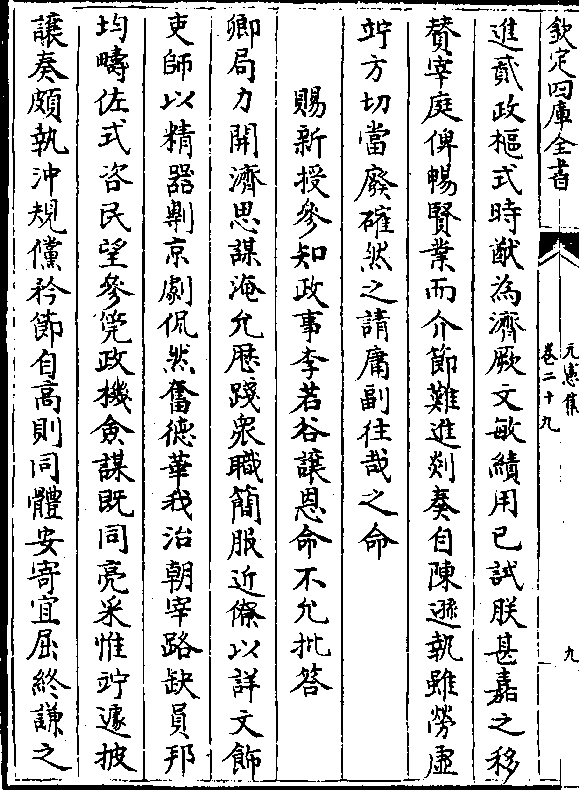 欽定四庫全書
元憲集
卷二十九
九
進貳政樞式時猷為濟厥文敏績用已試朕甚嘉之移
賛宰庭俾暢賢業而介節難進剡奏自陳遜執雖勞虛
竚方切當廢確然之請庸副往哉之命
賜新授參知政事李若谷讓恩命不允批答
卿局力開濟思謀淹允歴踐衆職簡服近僚以詳文飾
吏師以精器剸京劇侃然奮德華我治朝宰路缺員邦
均疇佐式咨民望參筦政機僉謀既同亮采惟竚遽披
讓奏頗執沖規儻矜節自高則同體安寄宜屈終謙之